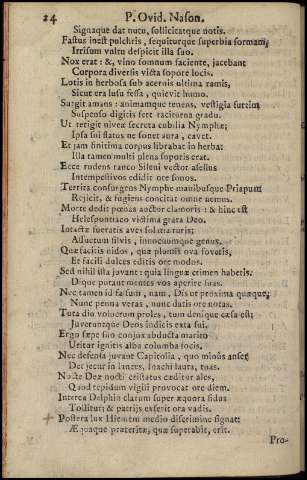 14 P. Ovid. Nason.
Signaque dat nutu, sollicitatque notis.
Fastus inest pulchris, sequiturque superbia formam;
Irrisum vultu despicit illa suo.
Nox erat: &, vino somnum faciente, jacebant
Corpora diversis victa sopore locis.
Lotis in herbosa sub acernis ultima ramis,
Sicut erat lusu fessa, quievit humo.
Surgit amans: animamque tenens, vestigia furtim
Suspenso digitis fert taciturna gradu.
Ut tetigit niveæ secreta cubilia Nymphæ;
Ipsa sui flatus ne sonet aura, cavet.
Et jam finitima corpus librabat in herba:
Illa tamen multi plena soporis erat.
Ecce rudens rauco Sileni vector asellus
Intempestivos edidit ore sonos.
Territa consurgens Nymphe manibusque Priapum
Rejicit, & fugiens concitat omne nemus.
Morte dedit pœnas auctor clamoris: & hinc est
Helespontriaco victima grata Deo.
Intactæ fueratis aves solatia ruris;
Assuetum silvis, innocuumque genus.
Quæ facitis nidos, quæ plumis ova fovetis,
Et facili dulces editis ore modos.
Sed nihil illa juvant: quia linguæ crimen habetis.
Dique putant mentes vos aperire suas.
Nec tamen id falsum, nam, Dis ut proxima quæque,
Nunc penna veras, nunc datis ore notas.
Tuta diu volucrum proles, tum denique cæsa est;
Juveruntque Deos indicis exta sui.
Ergo sæpe suo conjux abducta marito
Uritur ignitis alba columba focis.
Nec defensa juvant Capitolia, quo minus anser
Det jecur in lances, Inachi lauta, tuas.
Nocte Deæ nocti cristatus cæditur ales,
Quod tepidum vigili provocat ore diem.
Interea Delphin clarum super æquora sidus
Tollitur: & patriis exserit ora vadis.
Postera lux Hiemem medio discrimine signat:
Æquaque præteritæ, quæ superabit, erit.
Pro-